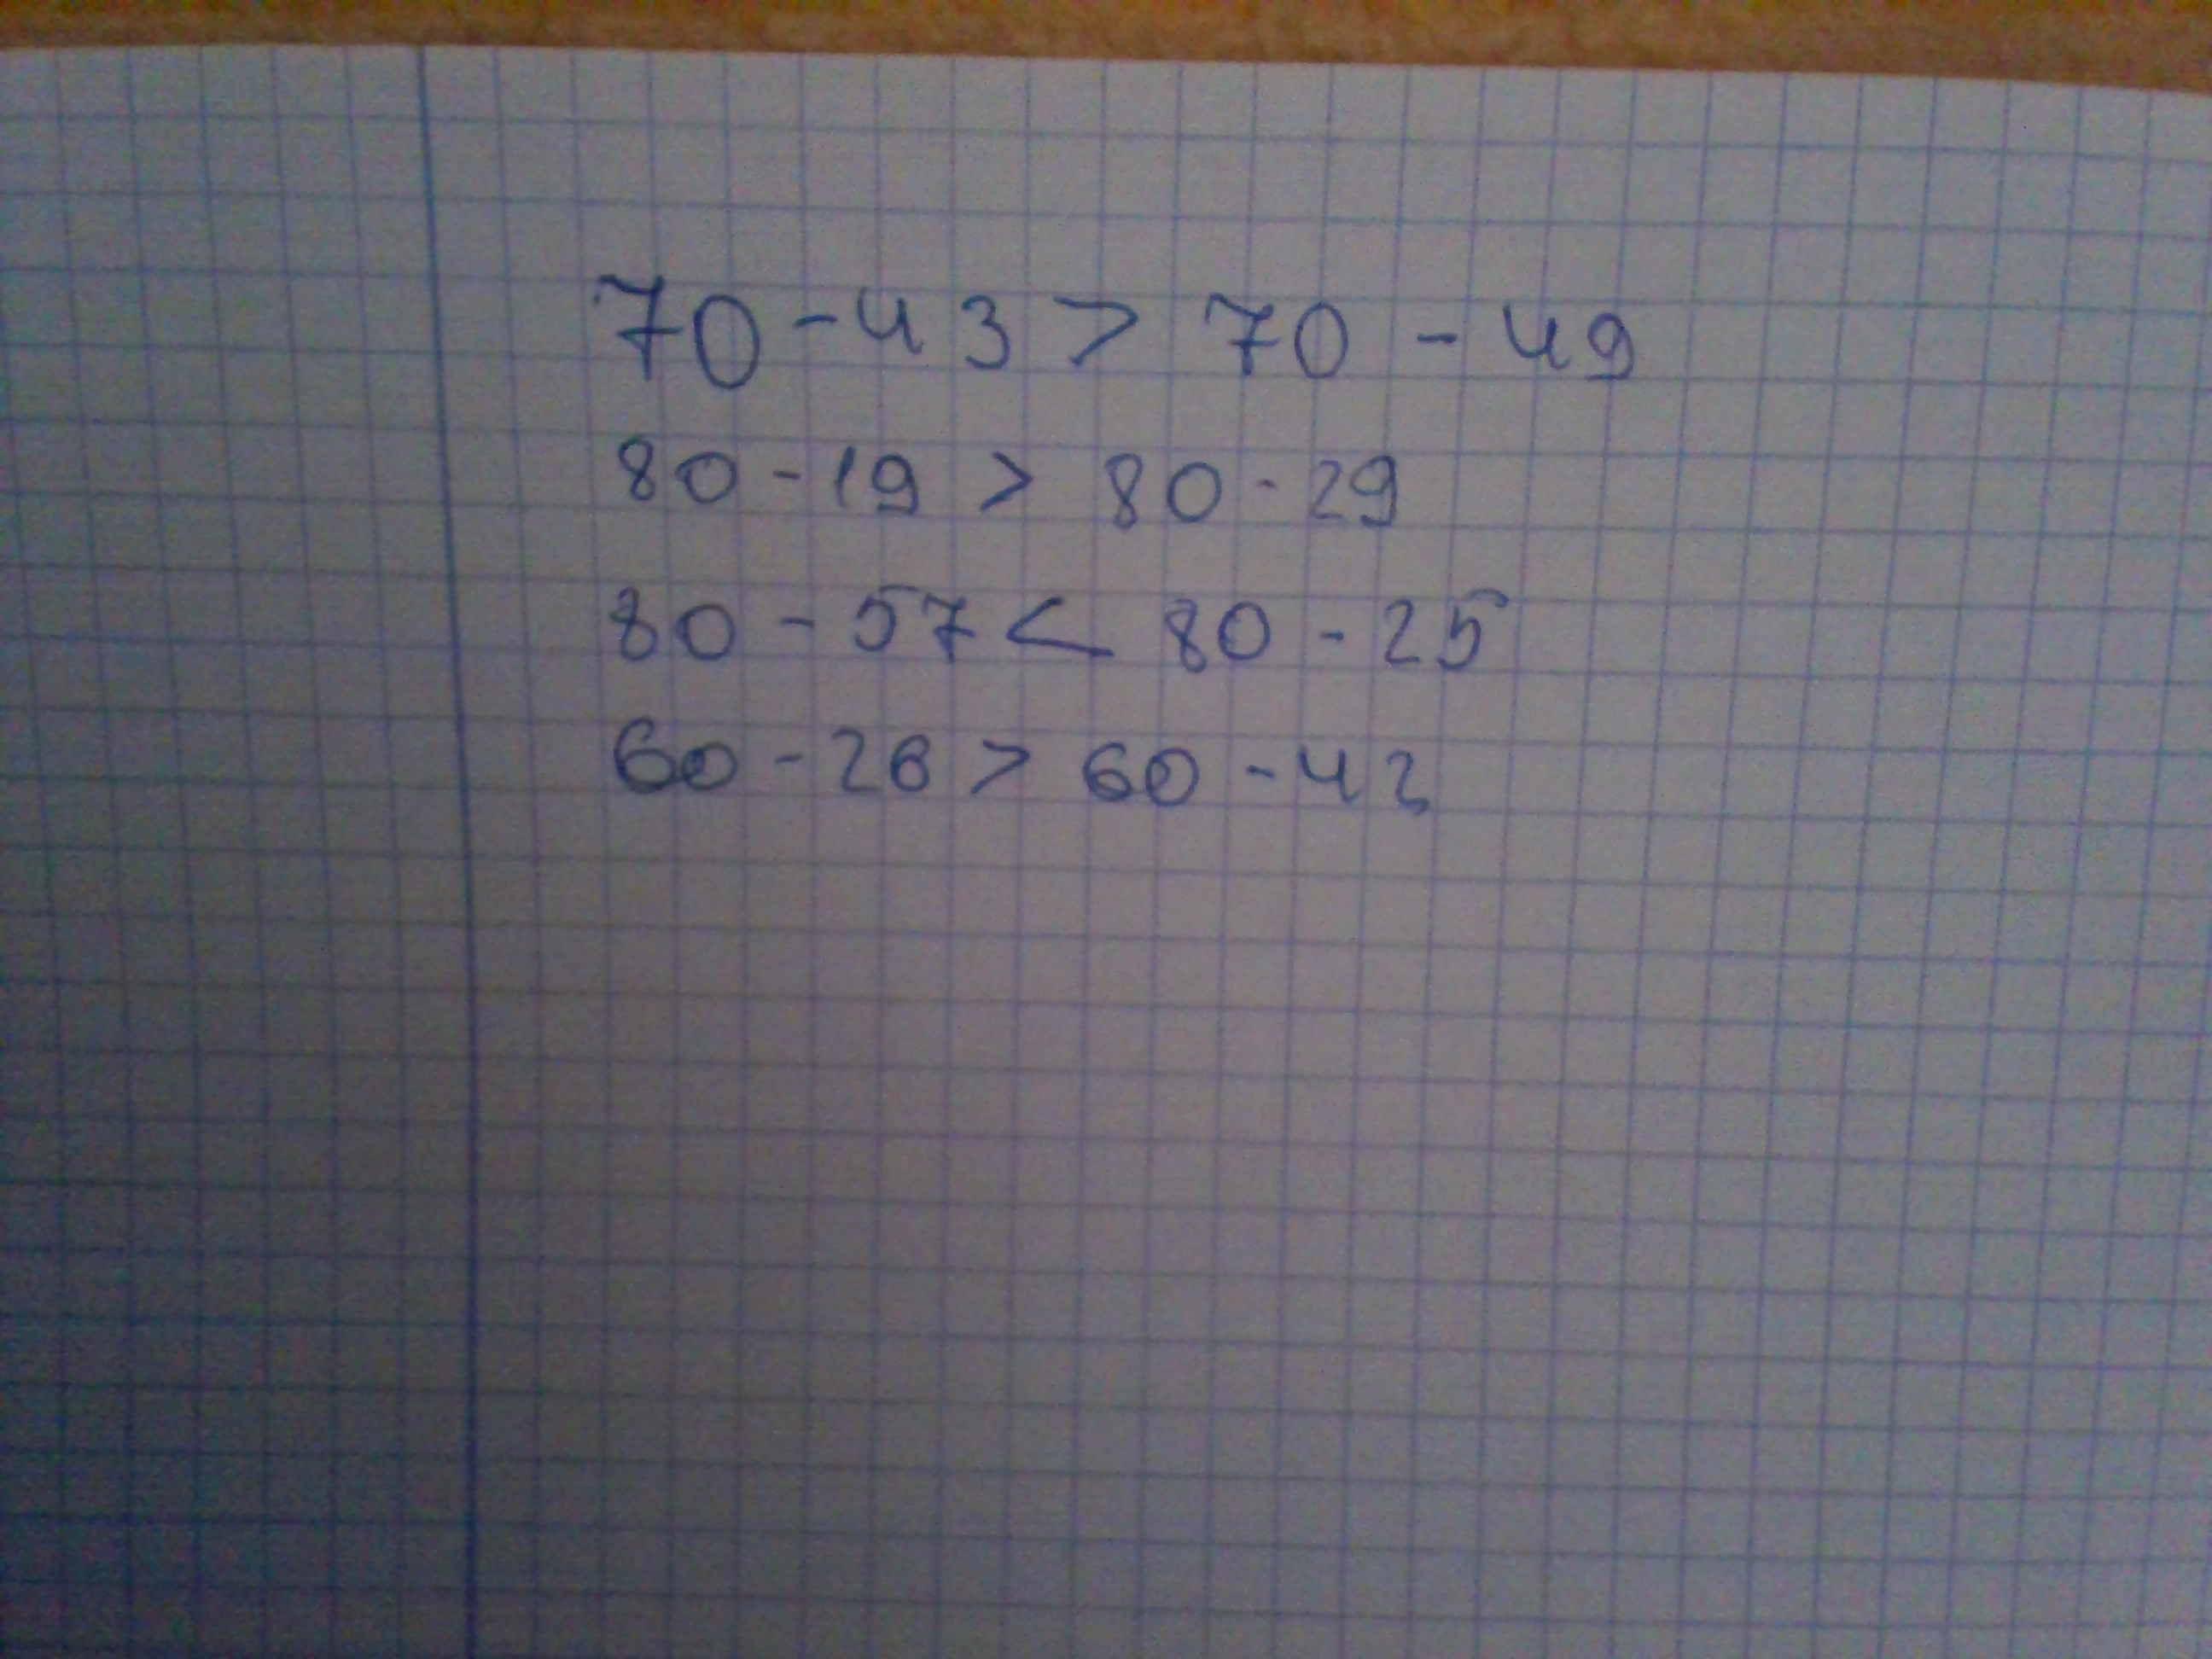 70-43 > 70-49
80-19 > 80-29
80-57 < 80-25
60-26 > 60-42